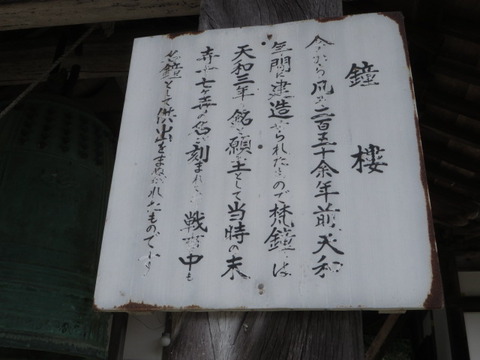 鐘樓
今から凡そ二百五十余年前天和
年間に建造せられたもので梵鐘は
天和三年 銘と願主として当時の末
寺 七ヶ寺の名が刻まれ 戦時中も
名鐘として供出をまぬがれたものです